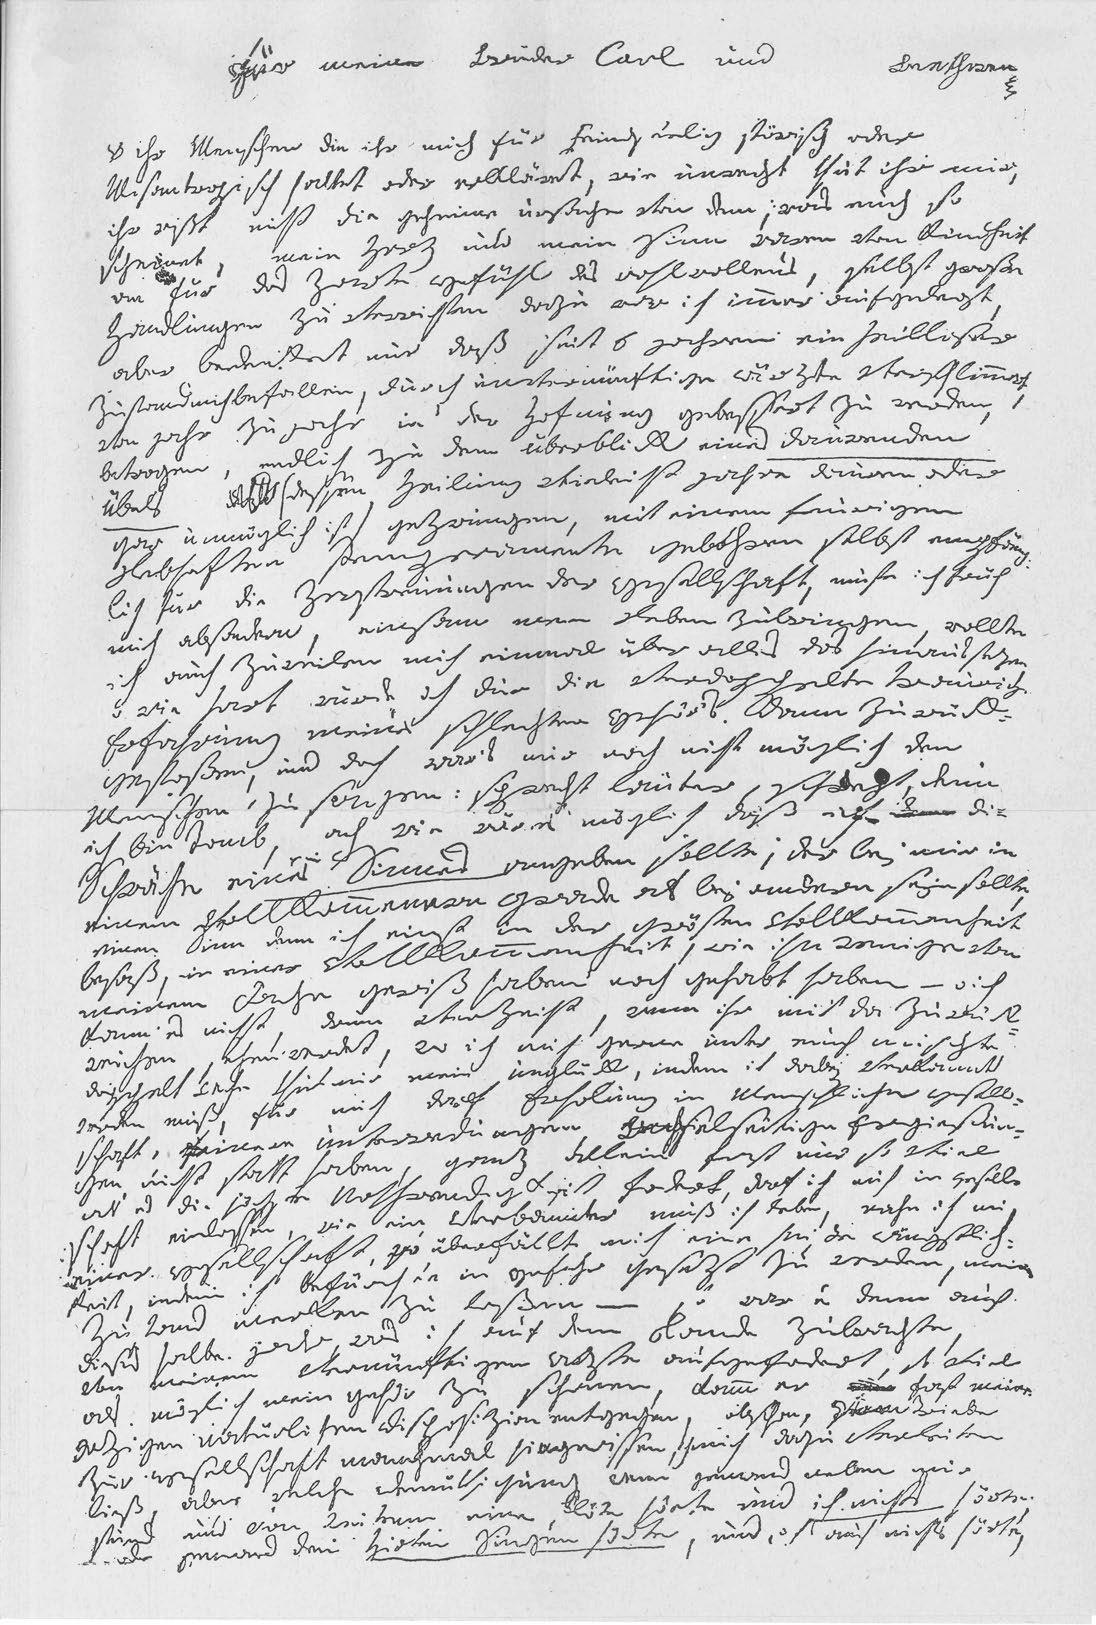 für meine Brüder Carl und Beethowen
o ihr Menschen die ihr mich für Feindseelig störisch oder
Misantropisch haltet oder erkläret, wie unrecht thut ihr mir,
ihr wißt nicht die geheime ursache von dem, was euch so
scheinet, mein Herz und mein Sinn waren von Kindheit
an für das Zarte gefühl des wohlwollens, selbst große
Handlungen zu verrichten dazu war ich immer aufgelegt,
aber bedenket nur daß seit 6 jahren ein heilloser
Zustand mich befallen, durch unvernünftige ärzte verschlimmert,
von jahr zu jahr in der Hofnung gebessert zu werden,
betrogen, endlich zu dem überblick eines daurenden
Übels (dessen Heilung vieleicht jahre dauren oder
gar unmöglich ist) gezwungen, mit einem feurigen
Lebhaften Temperamente gebohren selbst empfäng-
lich für die Zerstreuungen der gesellschaft, muste ich früh
mich absondern, einsam mein Leben zubringen, wollte
ich auch zuweilen mich einmal über alles das hinaussezen
o wie hart wurde ich dur die verdoppelte traurige
Erfahrung meines schlechten gehör's dann zurück-
gestoßen, und doch war's mir noch nicht möglich den
Menschen zu sagen: sprecht lauter, schrejt, denn
ich bin taub, ach wie wär es möglich daß ich die
Schwäche eines Sinnes angeben sollte; der bej mir in
einem vollkommenern grade als bej andern sejn sollte,
einen Sinn denn ich einst in der grösten vollkommenheit
besaß, in einer vollkommenheit, wie ihn wenige von
meinem Fache gewiß haben noch gehabt haben – o ich
kann es nicht, drum verzeiht, wenn ihr mich da zurück-
weichen sehen werdet, wo ich mich gerne unter euch mischte
doppelt wehe thut mir mein unglück, indem ich dabej verkannt
werden muß, für mich darf Erholung in Menschlicher gesell-
schaft, feinere unterredungen, wechselseitige Ergießun-
gen nicht statt haben, ganz allein fast nur so viel
als es die höchste Nothwendigkeit fodert, darf ich mich in gesell-
schaft einlassen, wie ein Verbannter muß ich leben, nahe ich mich
einer gesellschaft, so überfällt mich eine heiße ängstlich-
keit, indem ich befürchte in gefahr gesezt zu werden, meinen
Zustand merken zu laßen – so war es denn auch
dieses halbe jahr, was ich auf dem lande zubrachte,
von meinem vernünftigen arzte aufgefodert, so viel
als möglich mein gehör zu schonen, kamm er fast meiner
jezigen natürlichen disposizion entgegen, obschon, vom Triebe
zur gesellschaft manchmal hingerissen, ich mich dazu verleiten
ließ, aber welche demüthigung wenn jemand neben mir
stund und von weitem eine flöte hörte und ich nichts hörte,
oder jemand den Hirten Singen hörte, und ich auch nichts hörte,